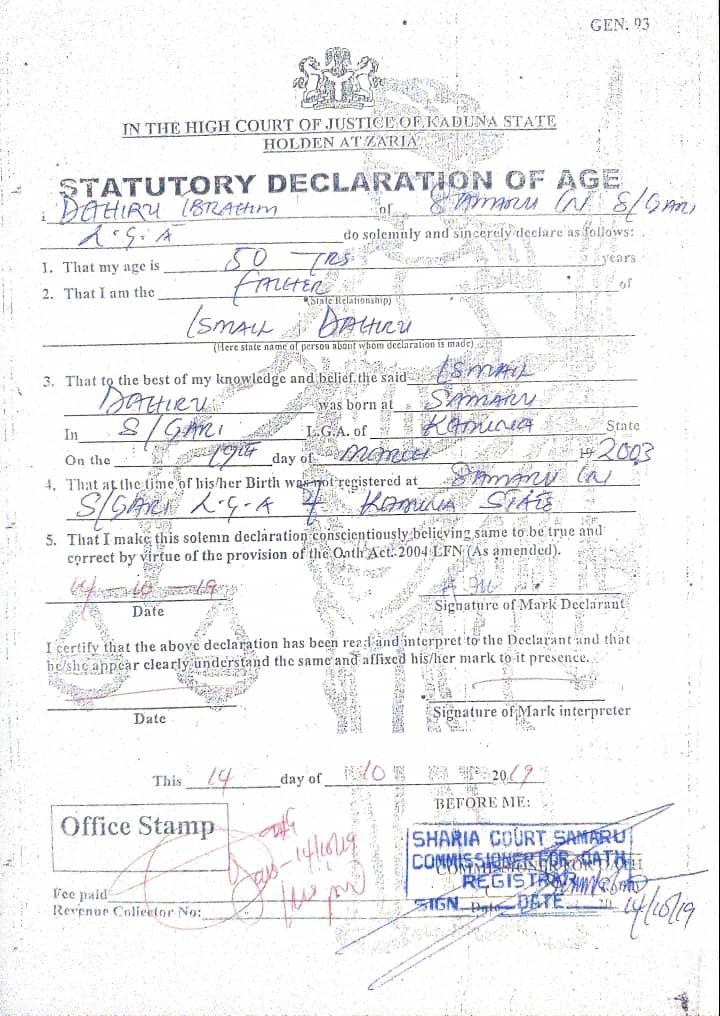 GEN. 93
IN THE HIGH COURT OF JUSTICE OF KADUNA STATE
HOLDEN AT ZARIA
STATUTORY DECLARATION OF AGE
I DAHIRU IBRAHIM of SAMARU (N) S/GARI
L.G.A do solemnly and sincerely declare as follows:
1. That my age is 50 YRS years
2. That I am the FATHER of
(State Relationship)
ISMAIL DAHIRU
(Here state name of person about whom declaration is made)
3. That to the best of my knowledge and belief the said ISMAIL
DAHIRU was born at SAMARU
In S/GARI L.G.A. of KADUNA State
On the 19th day of MARCH 19 2003
4. That at the time of his/her Birth was not registered at SAMARU (N)
S/GARI L.G.A of KADUNA STATE
5. That I make this solemn declaration conscientiously believing same to be true and
correct by virtue of the provision of the Oath Act. 2004 LFN (As amended).
14-10-19
Date Signature of Mark Declarant
I certify that the above declaration has been read and interpret to the Declarant and that
he/she appear clearly understand the same and affixed his/her mark to it presence.
Date Signature of Mark interpreter
This 14 day of 10 2019
BEFORE ME:
Office Stamp
14/10/19
SHARIA COURT SAMARU
COMMISSIONER FOR OATH
REGISTRAR
SIGN DATE 14/10/19
Fee paid
Revenue Collector No: